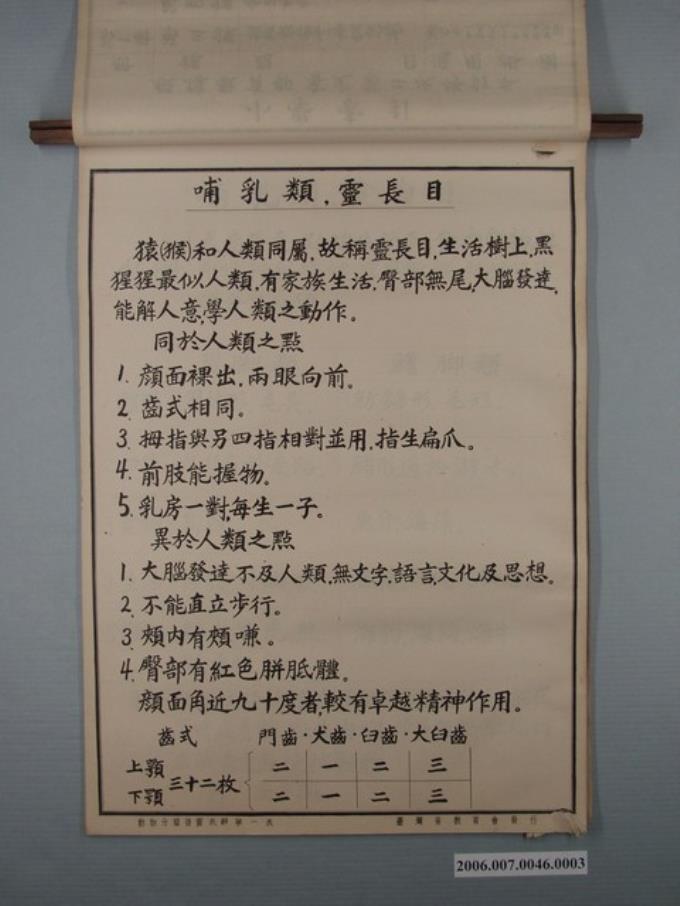 哺乳類,靈長目
猿(猴)和人類同屬,故稱靈長目,生活樹上,黑
猩猩最似人類,有家族生活,臀部無尾,大腦發達,
能解人意,學人類之動作。
同於人類之點
1. 顔面裸出,兩眼向前。
2. 齒式相同。
3. 拇指與另四指相對並用,指生扁爪。
4. 前肢能握物。
5. 乳房一對,每生一子。
異於人類之點
1. 大腦發達不及人類,無文字,語言,文化及思想。
2. 不能直立步行。
3. 頰内有頰嗛。
4. 臀部有紅色胼胝體。
顔面角近九十度者,較有卓越精神作用。
齒式 門齒·犬齒·臼齒·大臼齒
上顎 二 一 二 三
三十二枚
下顎 二 一 二 三
臺灣省教育會發行
2006.007.0046.0003